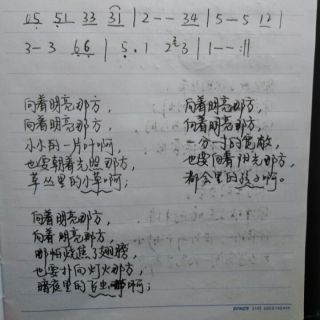 05 51 33 31 | 2 - - 34 | 5 - 5 12 |
3 - 3 66 | 5. 1 2 3 | 1 - - :||
向着明亮那方，
向着明亮那方，
小小的一片叶啊，
也要朝着光照那方，
草丛里的小草啊；
向着明亮那方，
向着明亮那方，
一分寸的宽敞
也要向着阳光那方，
都会里的孩子啊。
向着明亮那方，
向着明亮那方，
哪怕烧焦了翅膀
也要扑向灯火那方，
暗夜里的飞虫啊；